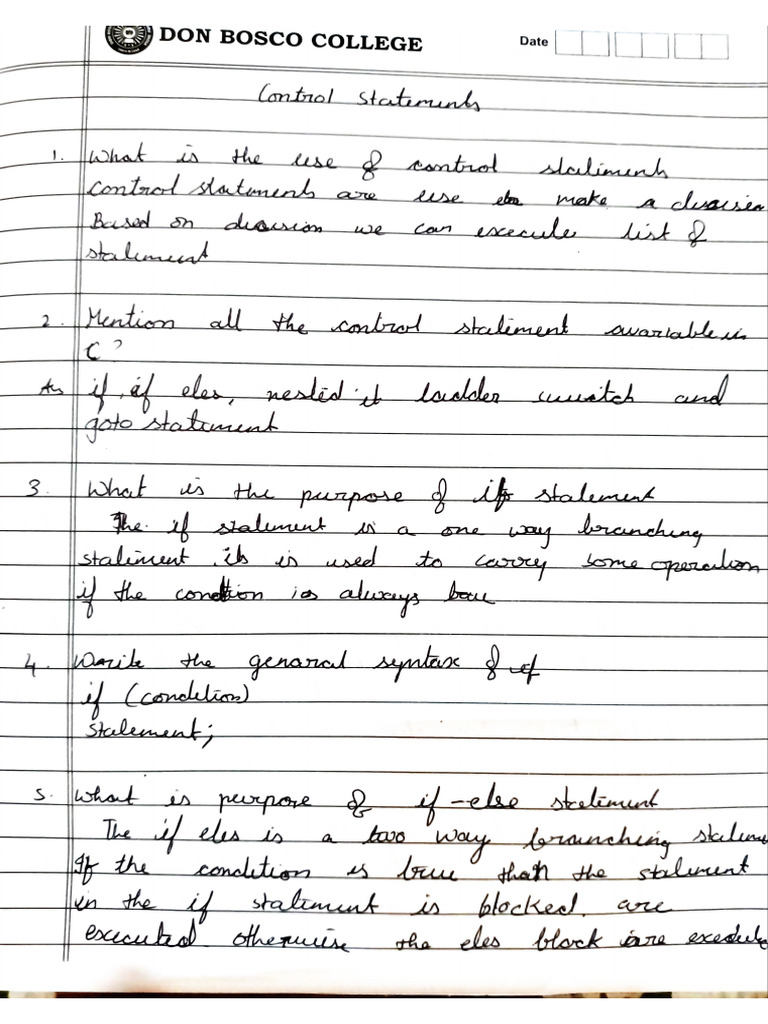 DON BOSCO COLLEGE Date
Control Statements
1. What is the use of control statiments
control statements are use to make a decision
Based on decision we can execute list of
statement
2. Mention all the control statiment avariable in
C?
Ans if, if eles, nested if ladder switch and
goto statement
3. What is the purpose of if statement
The if statement is a one way branching
statiment. it is used to carry some operation
if the condition is always true
4. Write the genaral syntax of if
if (condition)
statement;
5. What is purpose of if-else statement
The if eles is a two way branching
If the condition is true than the statement
in the if statiment is blocked. are
executed otherwise the eles block are